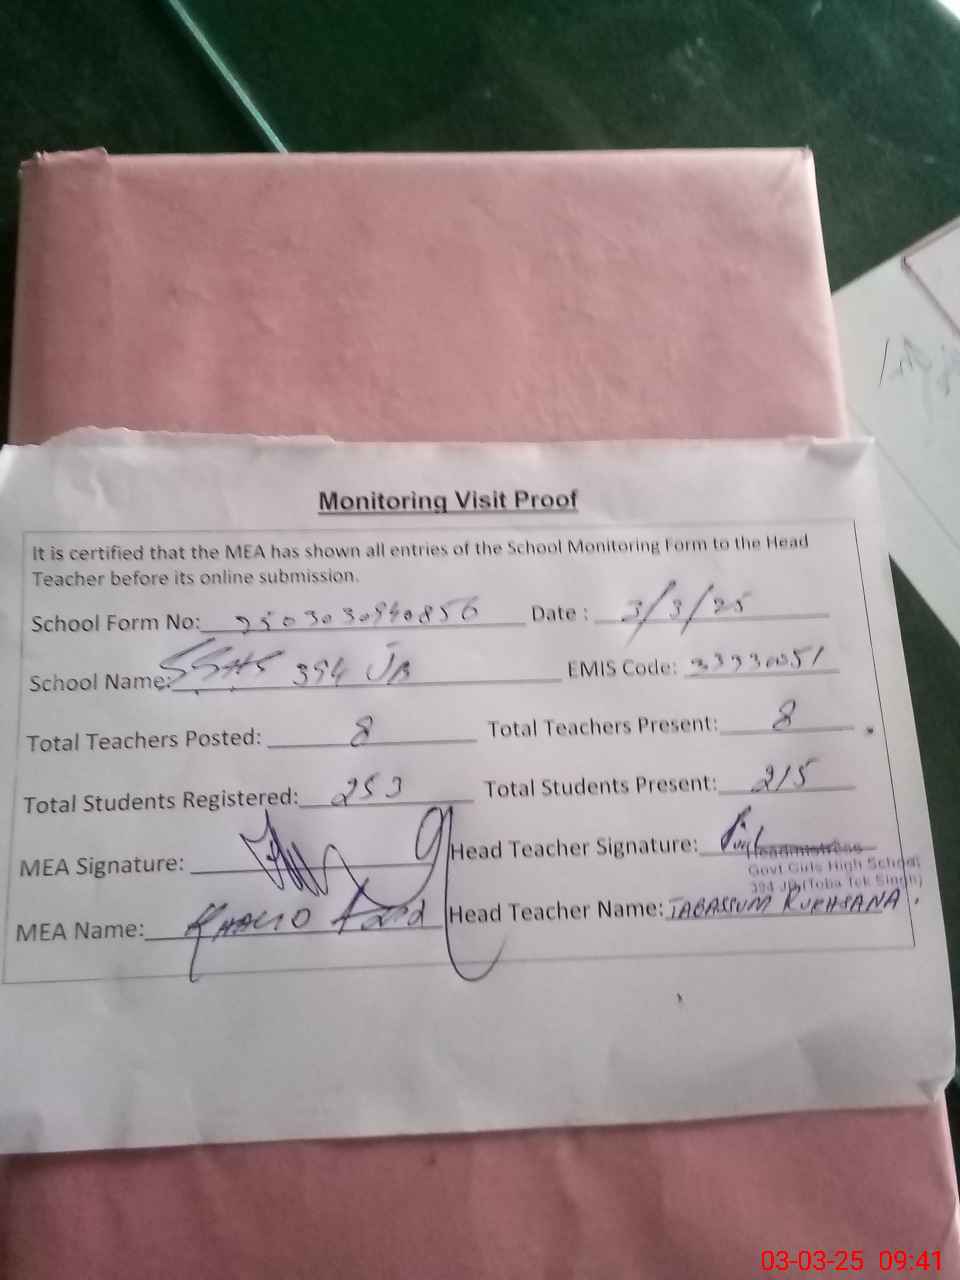 Monitoring Visit Proof
It is certified that the MEA has shown all entries of the School Monitoring Form to the Head
Teacher before its online submission.
School Form No: Date : 3/3/25
School Name: 394 JB EMIS Code:
Total Teachers Posted: 8 Total Teachers Present: 8
Total Students Registered: 253 Total Students Present: 215
MEA Signature: Head Teacher Signature:
Headmistress
Govt Girls High School
394 JB (Toba Tek Singh)
MEA Name: Head Teacher Name: TABASSUM RUKHSANA.
03-03-25 09:41